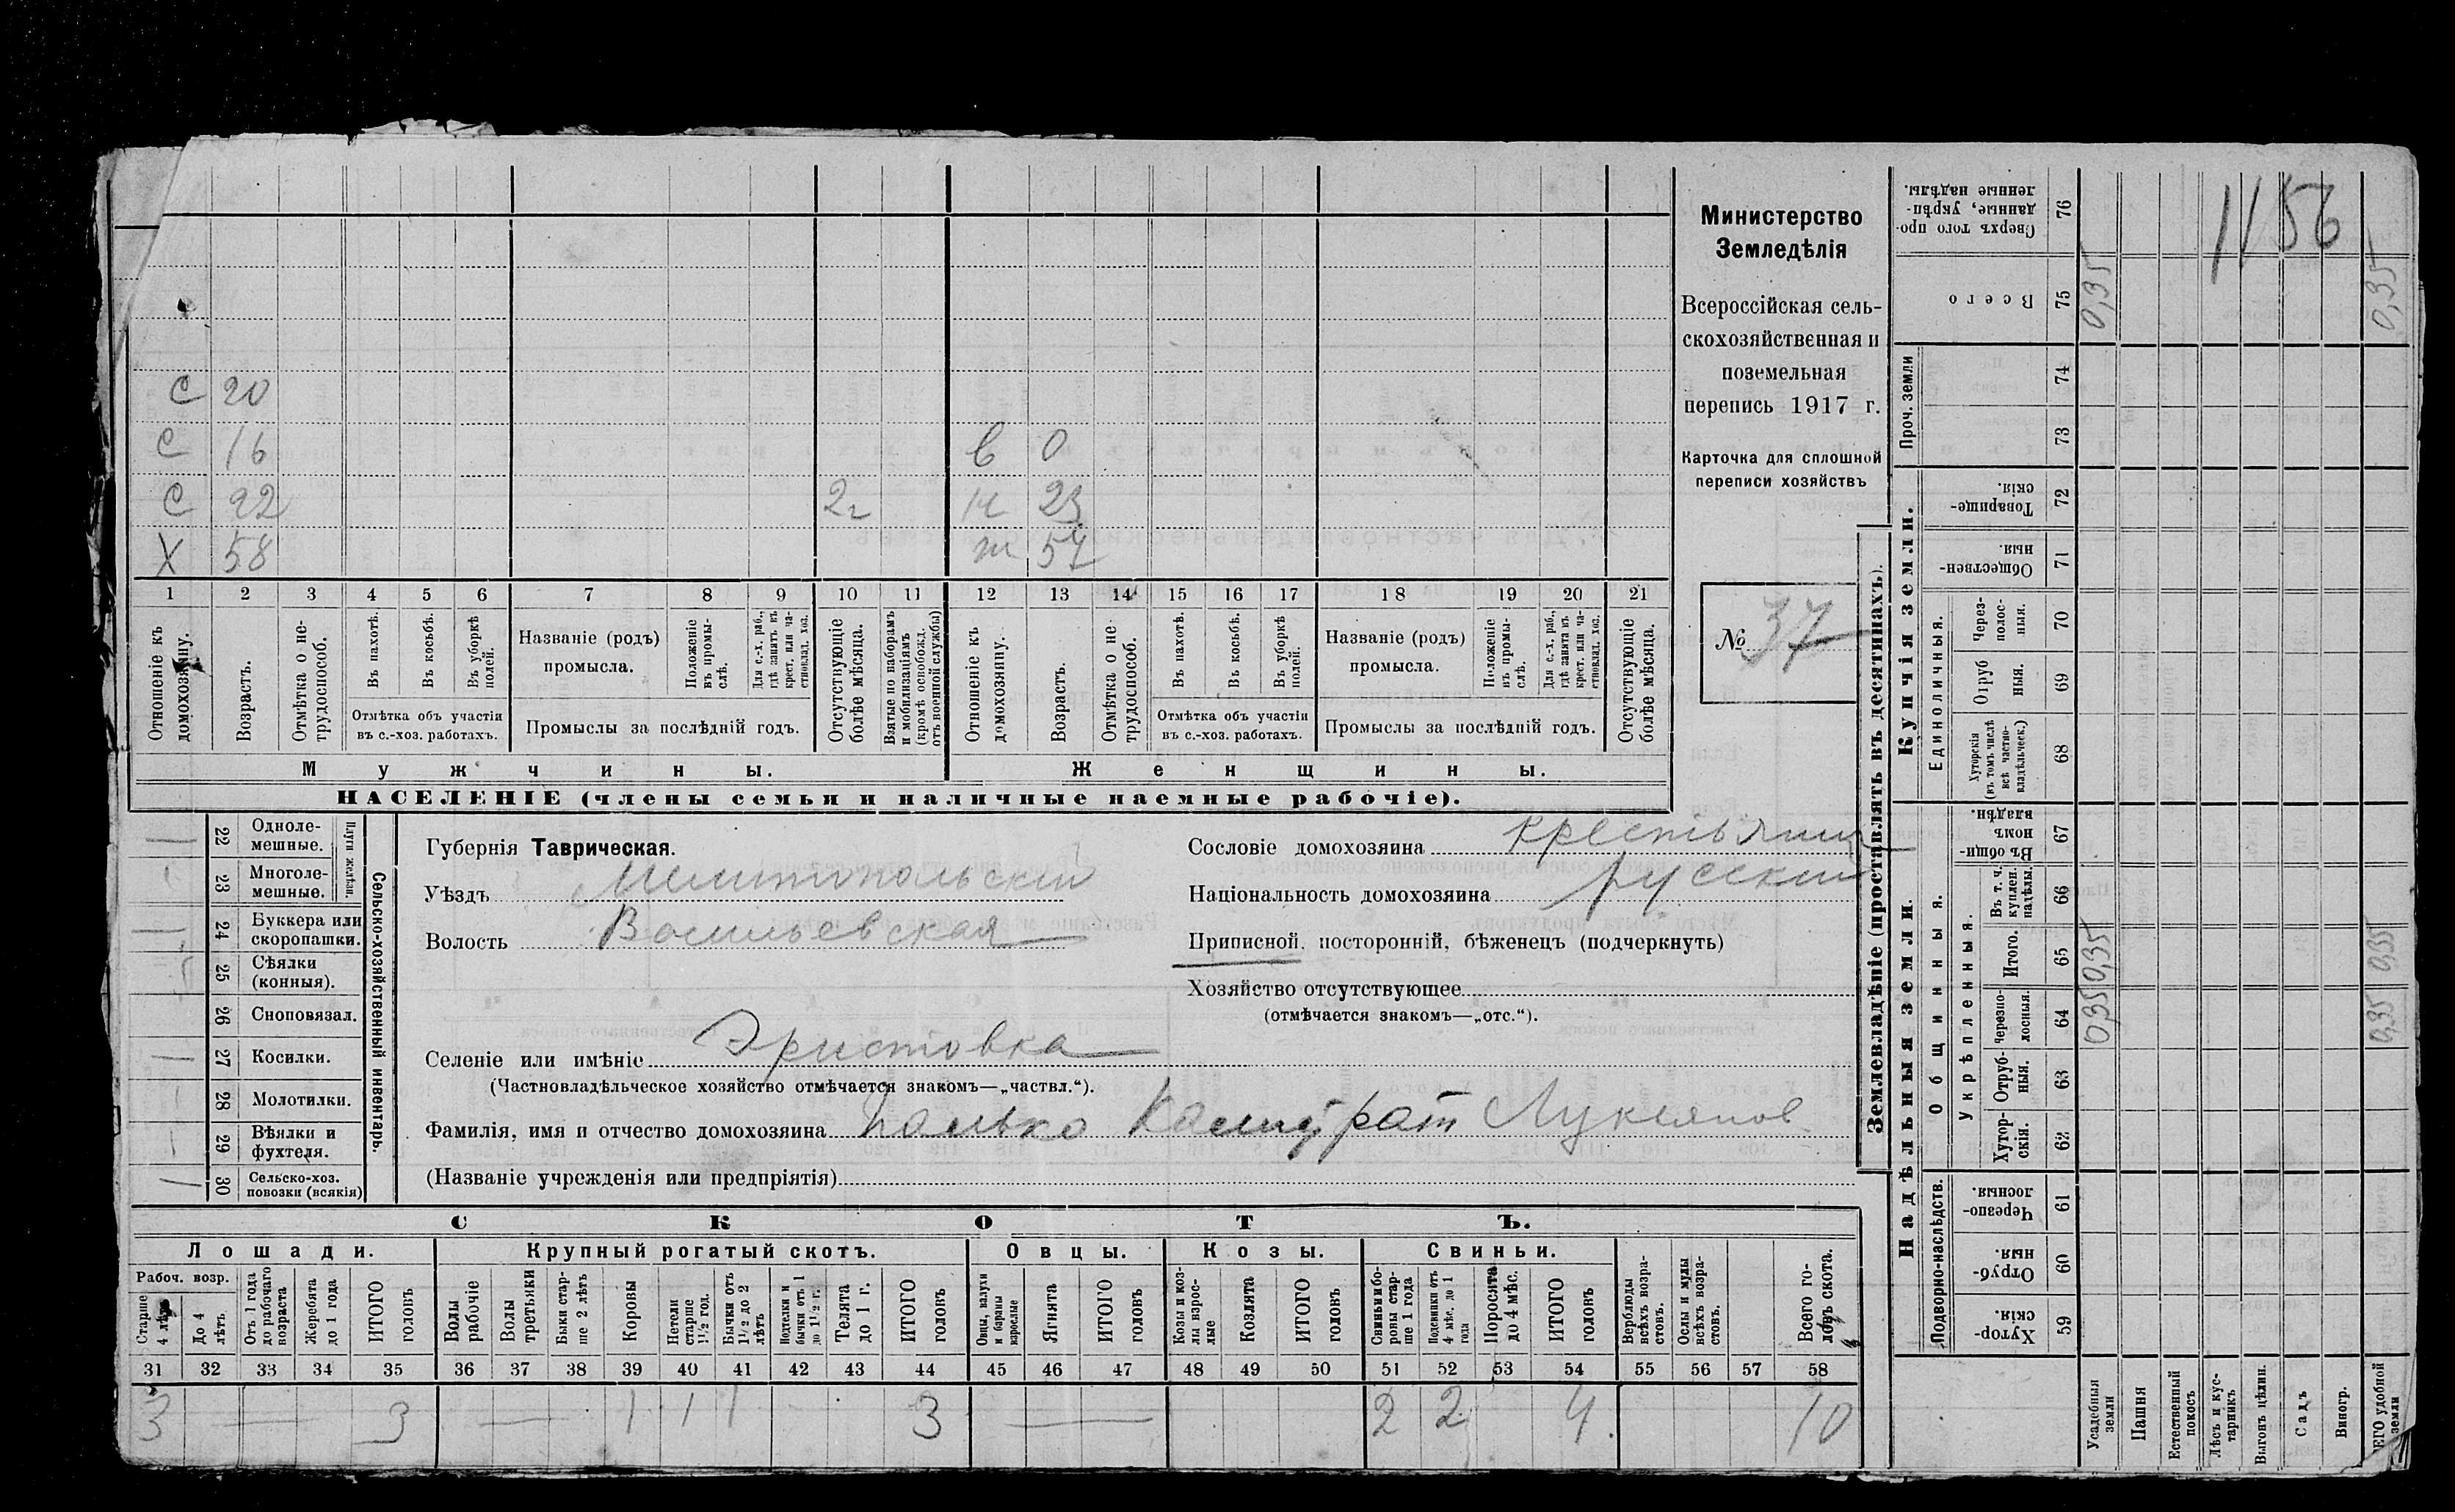 1156
Министерство
Земледѣлія
Всероссійская сель-
скохозяйственная и
поземельная
перепись 1917 г.
Карточка для сплошной
переписи хозяйствъ
№ 37
С 20
С 16 в 0
С 22 2г н 23
Х 58 ж 54
1 2 3 4 5 6 7 8 9 10 11 12 13 14 15 16 17 18 19 20 21
Отношеніе къ домохозяину.
Возрастъ.
Отмѣтка о не-трудоспособ.
Въ пахотѣ.
Въ косьбѣ.
Въ уборкѣ полей.
Отмѣтка объ участіи
въ с.-хоз. работахъ.
Названіе (родъ)
промысла.
Положеніе въ промы-слѣ.
Для с.-х. раб., гдѣ занятъ въ крест. или ча-стновлад. хоз.
Промыслы за послѣдній годъ.
Отсутствующіе болѣе мѣсяца.
Взятые по наборамъ и мобилизаціямъ (кромѣ освобожд. отъ военной службы)
Отношеніе къ домохозяину.
Возрастъ.
Отмѣтка о не-трудоспособ.
Въ пахотѣ.
Въ косьбѣ.
Въ уборкѣ полей.
Отмѣтка объ участіи
въ с.-хоз. работахъ.
Названіе (родъ)
промысла.
Положеніе въ промы-слѣ.
Для с.-х. раб., гдѣ занята въ крест. или ча-стновлад. хоз.
Промыслы за послѣдній годъ.
Отсутствующіе болѣе мѣсяца.
Мужчины.
Женщины.
НАСЕЛЕНІЕ (члены семьи и наличные наемные рабочіе).
Сельско-хозяйственный инвентарь.
Плуги желѣзн.
22 Одноле-мешные.
23 Многоле-мешные.
24 Буккера или скоропашки.
25 Сѣялки (конныя).
26 Сноповязал.
27 Косилки.
28 Молотилки.
29 Вѣялки и фухтеля.
30 Сельско-хоз. повозки (всякія)
Губернія Таврическая.
Уѣздъ Мелитопольскій
Волость Васильевская
Селеніе или имѣніе Эристовка
(Частновладѣльческое хозяйство отмѣчается знакомъ—„частвл.“).
Фамилія, имя и отчество домохозяина Калистрат Лукьянов
(Названіе учрежденія или предпріятія)
Сословіе домохозяина крестьянин
Національность домохозяина русский
Приписной, посторонній, бѣженецъ (подчеркнуть)
Хозяйство отсутствующее
(отмѣчается знакомъ—„отс.“).
СКОТЪ.
Лошади.
Крупный рогатый скотъ.
Овцы.
Козы.
Свиньи.
Рабоч. возр.
Старше 4 лѣтъ
До 4 лѣтъ.
Отъ 1 года до рабочаго возраста
Жеребята до 1 года
ИТОГО головъ
Волы рабочіе
Волы третьяки
Быки стар-ше 2 лѣтъ
Коровы
Нетели старше 1½ год.
Бычки отъ 1½ до 2 лѣтъ
Подтелки и бычки отъ 1 до 1½ г.
Телята до 1 г.
ИТОГО головъ
Овцы, валухи и бараны взрослые
Ягнята
ИТОГО головъ
Козы и коз-лы взрос-лые
Козлята
ИТОГО головъ
Свиньи и бо-ровы стар-ше 1 года
Подсвинки отъ 4 мѣс. до 1 года
Поросята до 4 мѣс.
ИТОГО головъ
Верблюды всѣхъ возра-стовъ.
Ослы и мулы всѣхъ возра-стовъ.
Всего го-ловъ скота.
31 32 33 34 35 36 37 38 39 40 41 42 43 44 45 46 47 48 49 50 51 52 53 54 55 56 57 58
3 — 3 — 1 1 1 3 — 2 2 4 10
Землевладѣніе (проставлять въ десятинахъ).
Надѣльныя земли.
Купчія земли.
Проч. земли
Подворно-наслѣдств.
Общинныя.
Укрѣпленныя.
Единоличныя.
59 Хутор-скія.
60 Отруб-ныя.
61 Черезпо-лосныя.
62 Хутор-скія.
63 Отруб-ныя.
64 Черезпо-лосныя. 0,35 0,35
65 Итого. 0,35 0,35
66 Въ т. ч. куплен. надѣлы.
67 Въ общи-номъ владѣн.
68 Хуторскія (въ томъ числѣ всѣ частно-владѣльческ.)
69 Отруб ныя.
70 Через-полос-ныя.
71 Обществен-ныя.
72 Товарище-скія.
73
74
75 Всего 0,35 0,35
76 Сверхъ того про-данные, укрѣп-ленные надѣлы.
Усадебныя земли
Пашня
Естественный покосъ
Лѣсъ и кус-тарникъ
Выгонъ цѣлин.
Садъ
Виногр.
удобной земли